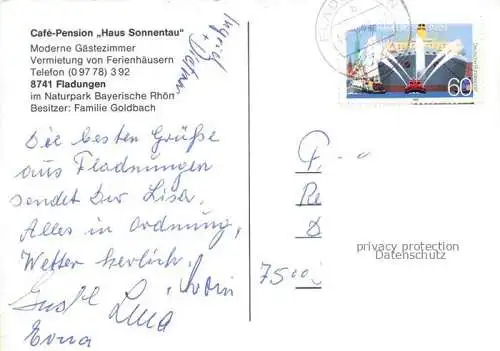 Café-Pension „Haus Sonnentau"
Moderne Gästezimmer
Vermietung von Ferienhäusern
Telefon (0 97 78) 3 92
8741 Fladungen
im Naturpark Bayerische Rhön
Besitzer: Familie Goldbach
Ingrid
+ Dieter
Die besten Grüße
aus Fladnungen
sendet Dir Lisa.
Alles in Ordnung,
Wetter herlich.
Lina
Erna
FLAD
60
F.
Re
D
7500
privacy protection
Datenschutz